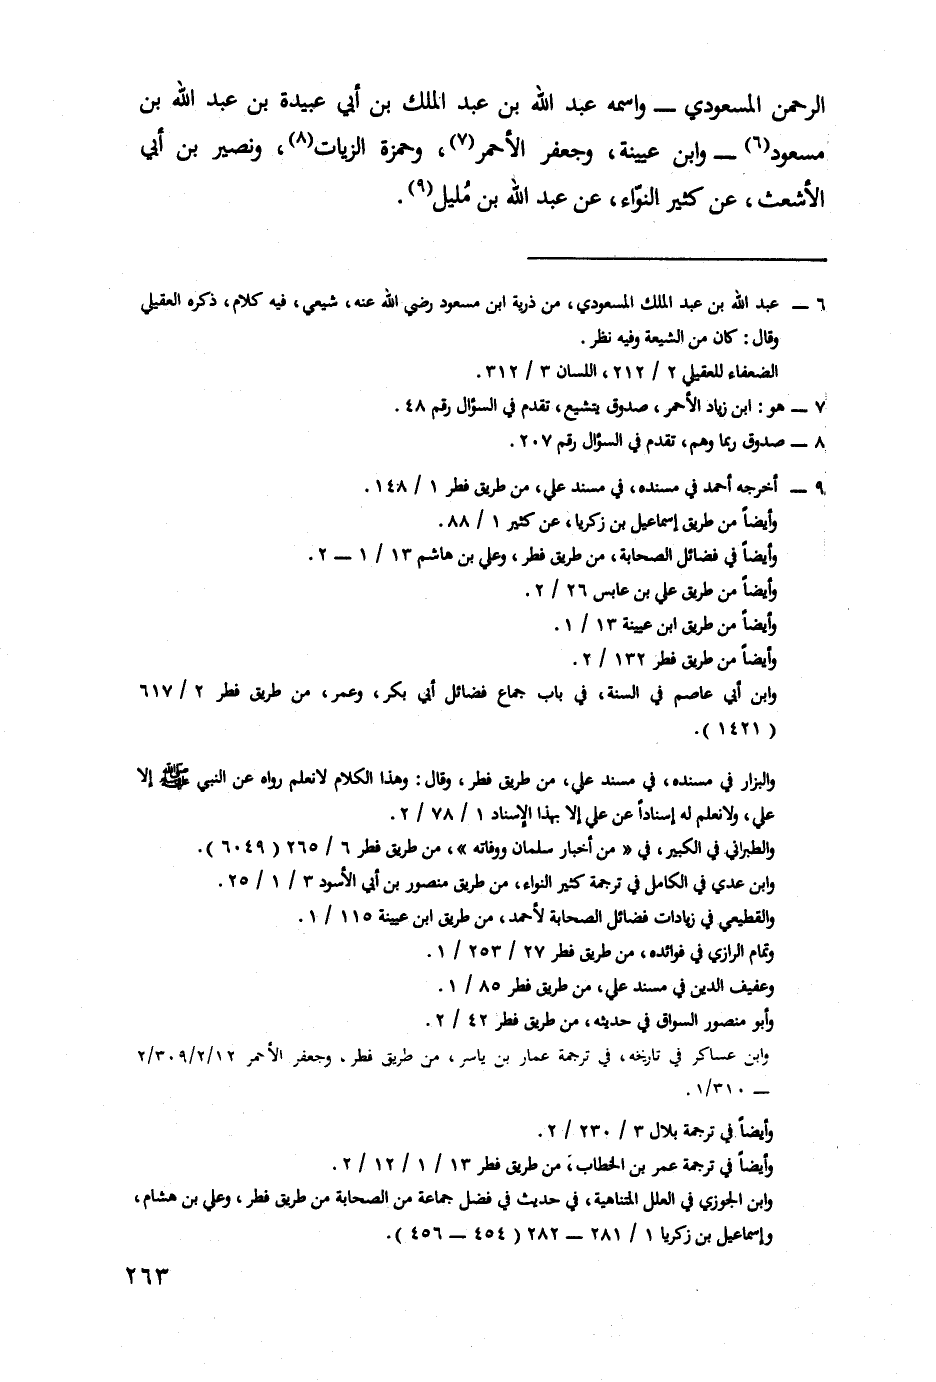 الرحمن المسعودي ــ واسمه عبد الله بن عبد الملك بن أبي عبيدة بن عبد الله بن
مسعود(٦) ــ وابن عيينة، وجعفر الأحمر(٧)، وحمزة الزيات(٨)، ونصير بن أبي
الأشعث، عن كثير النوّاء، عن عبد الله بن مُليل(٩).
٦ ــ عبد الله بن عبد الملك المسعودي، من ذرية ابن مسعود رضي الله عنه، شيعي، فيه كلام، ذكره العقيلي
وقال: كان من الشيعة وفيه نظر.
الضعفاء للعقيلي ٢ / ٢١٢، اللسان ٣ / ٣١٢.
٧ ــ هو: ابن زياد الأحمر، صدوق يتشيع، تقدم في السؤال رقم ٤٨.
٨ ــ صدوق ربما وهم، تقدم في السؤال رقم ٢٠٧.
٩ ــ أخرجه أحمد في مسنده، في مسند علي، من طريق فطر ١ / ١٤٨.
وأيضاً من طريق إسماعيل بن زكريا، عن كثير ١ / ٨٨.
وأيضاً في فضائل الصحابة، من طريق فطر، وعلي بن هاشم ١٣ / ١ ــ ٢.
وأيضاً من طريق علي بن عابس ٢٦ / ٢.
وأيضاً من طريق ابن عيينة ١٣ / ١.
وأيضاً من طريق فطر ١٣٢ / ٢.
وابن أبي عاصم في السنة، في باب جماع فضائل أبي بكر، وعمر، من طريق فطر ٢ / ٦١٧
( ١٤٢١ ).
والبزار في مسنده، في مسند علي، من طريق فطر، وقال: وهذا الكلام لانعلم رواه عن النبي ﷺ إلا
علي، ولانعلم له إسناداً عن علي إلا بهذا الإسناد ١ / ٧٨ / ٢.
والطبراني في الكبير، في « من أخبار سلمان ووفاته »، من طريق فطر ٦ / ٢٦٥ ( ٦٠٤٩ ).
وابن عدي في الكامل في ترجمة كثير النواء، من طريق منصور بن أبي الأسود ٣ / ١ / ٢٥.
والقطيعي في زيادات فضائل الصحابة لأحمد، من طريق ابن عيينة ١١٥ / ١.
وتمام الرازي في فوائده، من طريق فطر ٢٧ / ٢٥٣ / ١.
وعفيف الدين في مسند علي، من طريق فطر ٨٥ / ١.
وأبو منصور السواق في حديثه، من طريق فطر ٤٢ / ٢.
وابن عساكر في تاريخه، في ترجمة عمار بن ياسر، من طريق فطر. وجعفر الأحمر ٢/٣٠٩/٢/١٢
ــ ١/٣١٠.
وأيضاً في ترجمة بلال ٣ / ٢٣٠ / ٢.
وأيضاً في ترجمة عمر بن الخطاب، من طريق فطر ١٣ / ١ / ١٢ / ٢.
وابن الجوزي في العلل المتناهية، في حديث في فضل جماعة من الصحابة من طريق فطر، وعلي بن هشام،
وإسماعيل بن زكريا ١ / ٢٨١ ــ ٢٨٢ ( ٤٥٤ ــ ٤٥٦ ).
٢٦٣